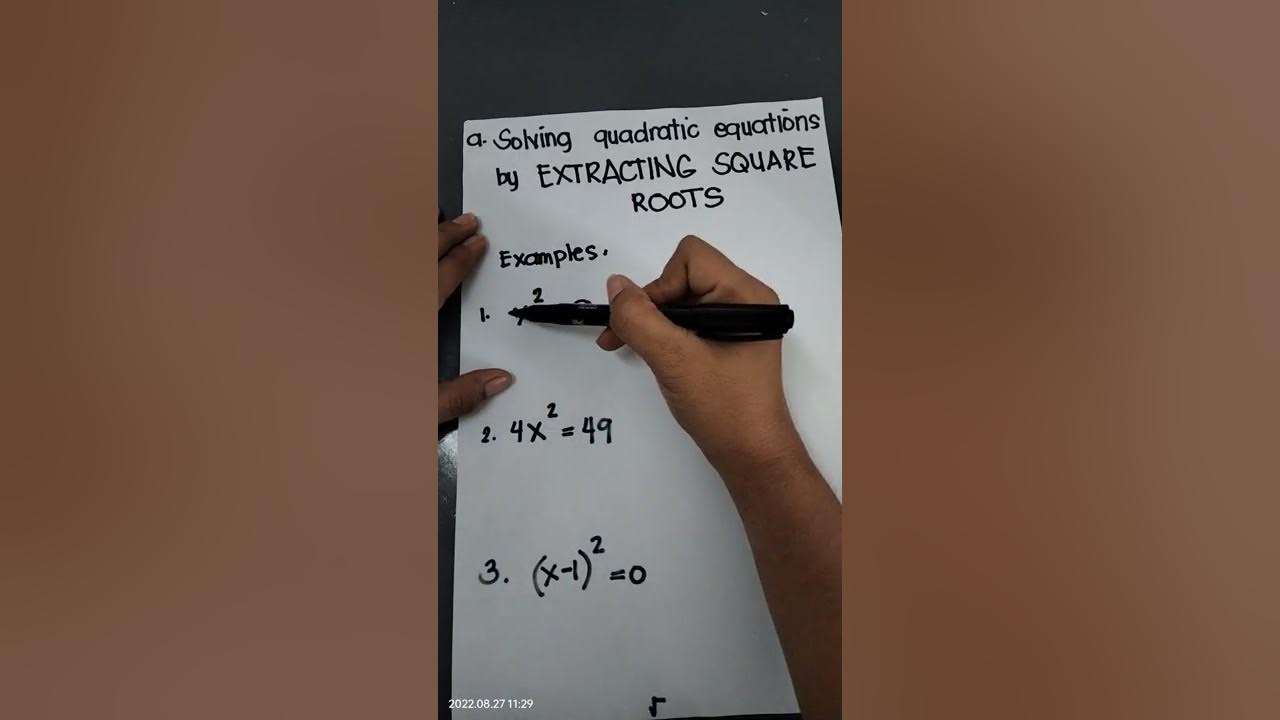 a. Solving quadratic equations
by EXTRACTING SQUARE
ROOTS
Examples.
1. x²
2. 4x² = 49
3. (x-1)² = 0
√
2022.08.27 11:29